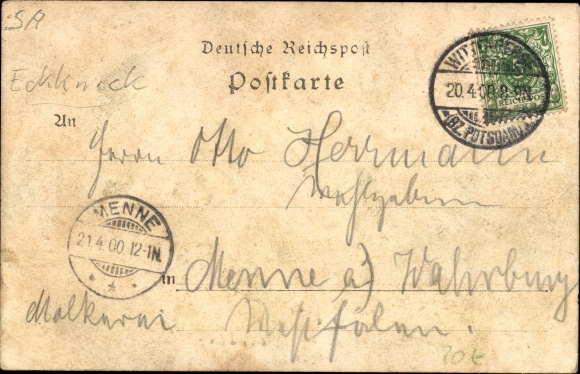 SA
Deutsche Reichspost
Postkarte
An
Herrn Otto Herrmann
MENNE
21.4.00.12-1N.
in Menne a) Wahrburg
Molkerei Westfalen.
20€
20.4.00.8-9N
(BZ. POTSDAM)
REICHSPOST